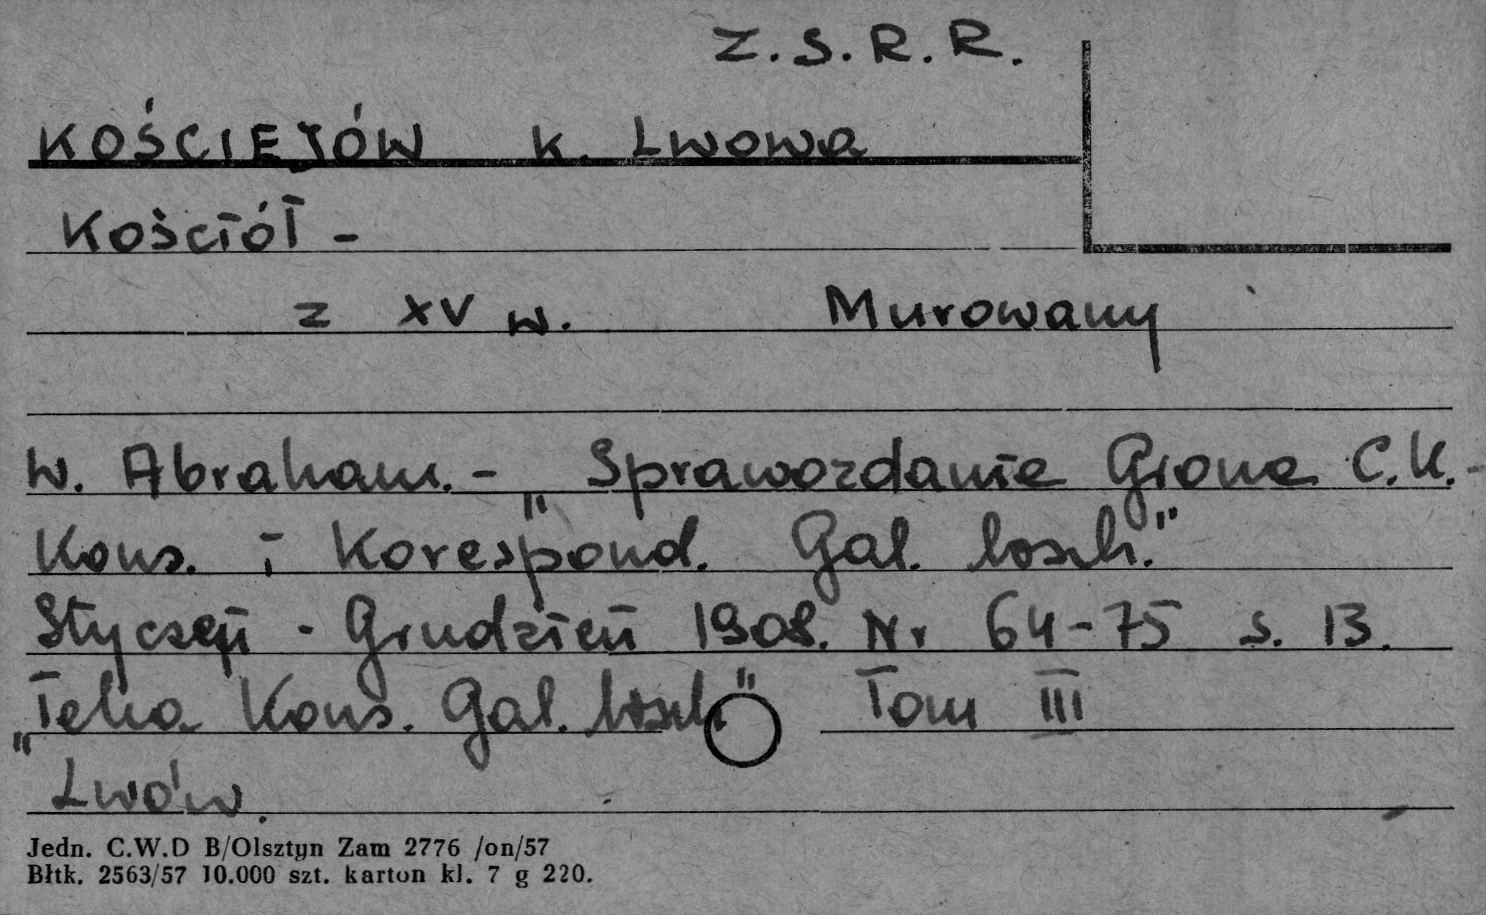 Z.S.R.R.
KOŚCIEJÓW k. Lwowa
Kościół -
z XV w. Murowany
W. Abraham. - „Sprawozdanie Grona C.K. -
Kons. i Korespond. Gal. wsch."
Styczeń - Grudzień 1908. Nr 64-75 s. 13.
„Teka Kons. Gal. wsch" Tom III
Lwów.
Jedn. C.W.D B/Olsztyn Zam 2776 /on/57
Błtk. 2563/57 10.000 szt. karton kl. 7 g 220.